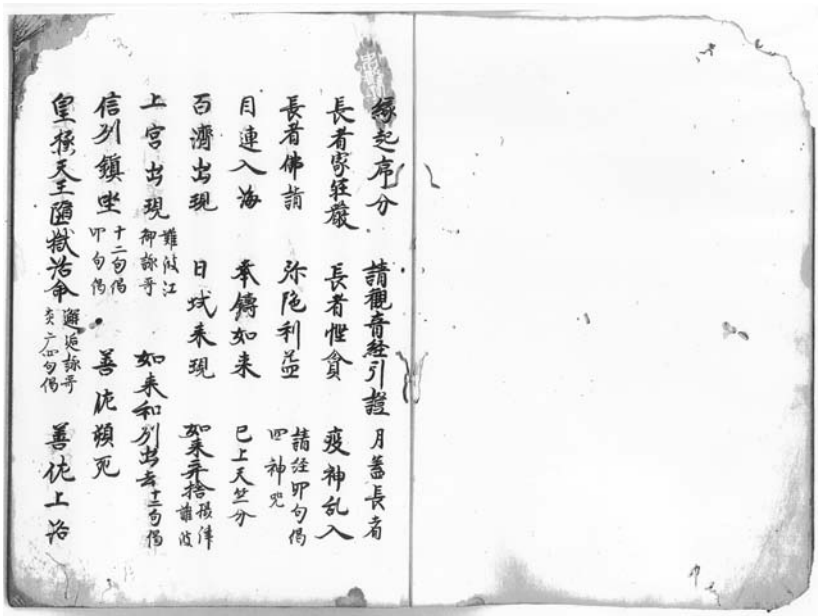 縁起序分 請觀音経引證 月蓋長者
長者家荘嚴 長者慳貪 疫神乱入
長者佛請 弥陁利益 請経四句偈 四神咒
月連入海 奉鑄如来 已上天竺分
百濟出現 日域来現 如来弃捨 摂津難波
上宮出現 難波江御詠哥 如来和列出去 十二句偈
信列鎮坐 十二句偈 四句偈 善佐頓死
皇極天王墮獄活命 邂逅詠哥 善佐上洛